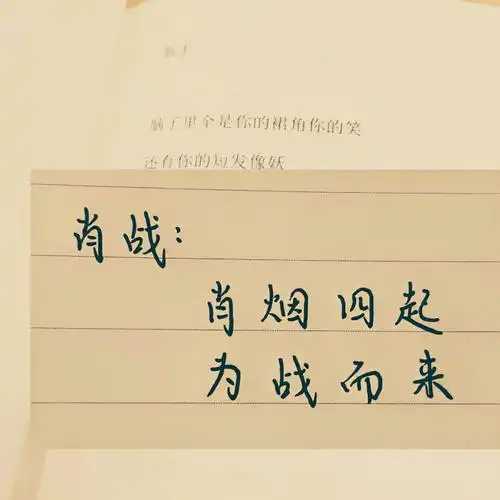 脑子里全是你的裙角你的笑
还有你的短发像妖
肖战:
肖烟四起
为战而来